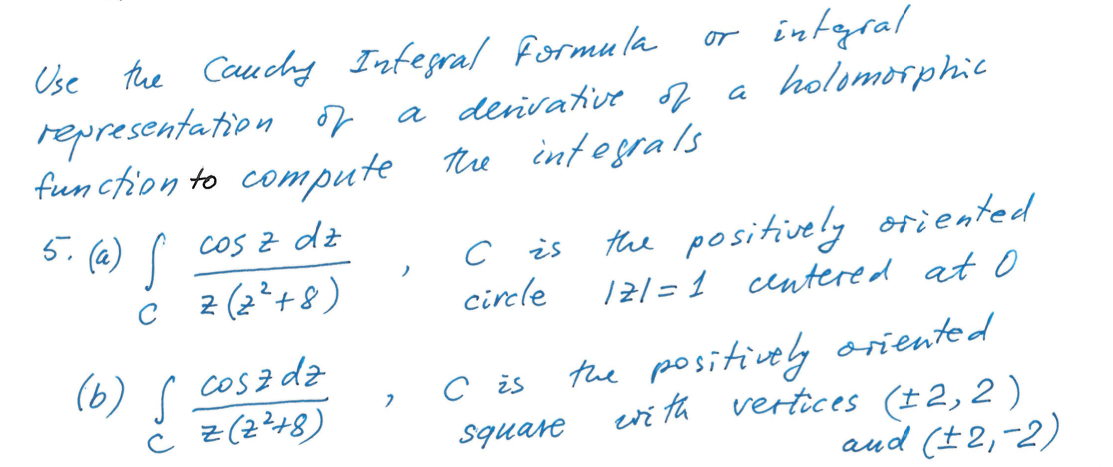 Use the Cauchy Integral Formula or integral
representation of a derivative of a holomorphic
function to compute the integrals
5. (a) ∫_C cos z dz / z(z²+8) , C is the positively oriented
circle |z|=1 centered at 0
(b) ∫_C cos z dz / z(z²+8) , C is the positively oriented
square with vertices (±2,2)
and (±2,-2)